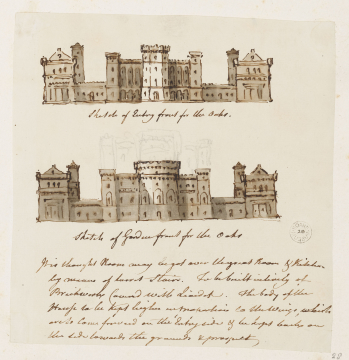 Sketch of Entry front for the Oaks.
Sketch of Garden front for the Oaks
It is thought Room may be got over the great Room & Kitchen
by means of turret Stairs. To be built entirely of
Brickwork Covered with Liardet. The body of the
House to be kept higher in proportion to the Wings, which
are to come forward on the Entry side & be kept back on
the side towards the grounds & prospect.
20